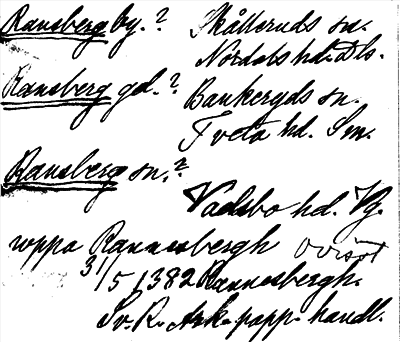 Ransberg by.? Skålleruds sn.
Nordals hd. Ds.
Ransberg gd.? Bankeryds sn.
Tveta hd. Sm.
Ransberg sn.?
Vadsbo hd. Vg.
uppa Rannesbergh ovisst
3/5 1382 Rannesbergh.
Sv. R. Ark. papp. handl.